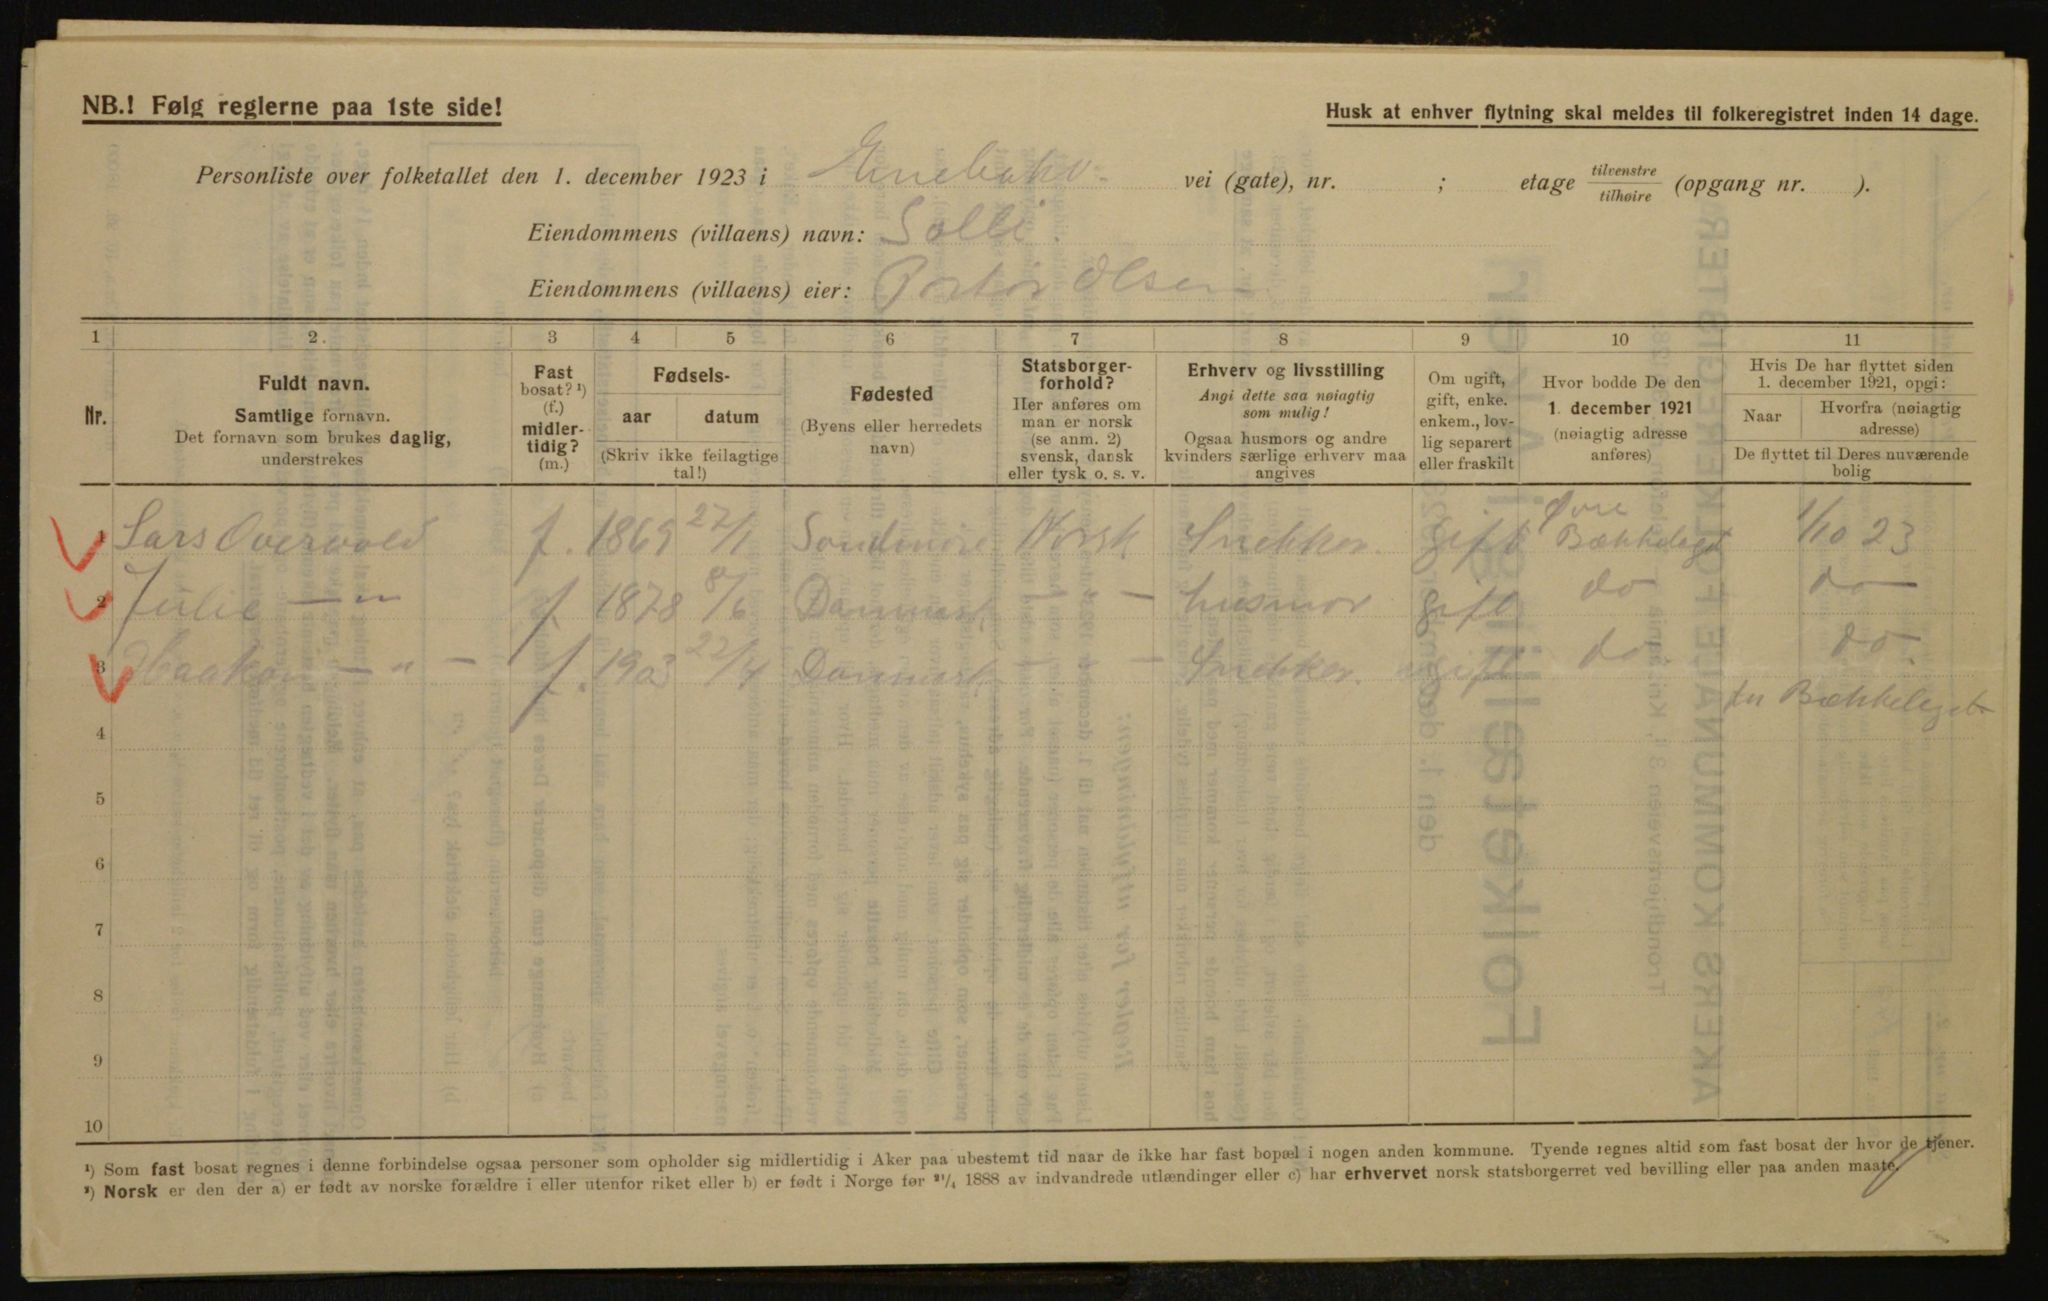 NB.! Følg reglerne paa 1ste side!
Husk at enhver flytning skal meldes til folkeregistret inden 14 dage.
Personliste over folketallet den 1. december 1923 i vei (gate), nr. ; etage tilvenstre/tilhøire (opgang nr. ).
Eiendommens (villaens) navn: Solli.
Eiendommens (villaens) eier: Portør Olsen
1 2. 3 4 5 6 7 8 9 10 11
Nr.
Fuldt navn.
Samtlige fornavn.
Det fornavn som brukes daglig,
understrekes
Fast
bosat? ¹)
(f.)
midler-
tidig?
(m.)
Fødsels-
aar datum
(Skriv ikke feilagtige
tal!)
Fødested
(Byens eller herredets
navn)
Statsborger-
forhold?
Her anføres om
man er norsk
(se anm. 2)
svensk, dansk
eller tysk o. s. v.
Erhverv og livsstilling
Angi dette saa nøiagtig
som mulig!
Ogsaa husmors og andre
kvinders særlige erhverv maa
angives
Om ugift,
gift, enke.
enkem., lov-
lig separert
eller fraskilt
Hvor bodde De den
1. december 1921
(nøiagtig adresse
anføres)
Hvis De har flyttet siden
1. december 1921, opgi:
Naar
Hvorfra (nøiagtig
adresse)
De flyttet til Deres nuværende
bolig
1 Lars Overvold f. 1869 27/1 Søndmøre Norsk Snekker. gift Øvre Bækkeleget 1/10 23
2 Julie — " — f. 1878 8/6 Danmark — " — husmor gift do do
3 Haakon — " — f. 1903 22/4 Danmark — " — Snekker. ugift do do.
Bækkeleget
4
5
6
7
8
9
10
¹) Som fast bosat regnes i denne forbindelse ogsaa personer som opholder sig midlertidig i Aker paa ubestemt tid naar de ikke har fast bopæl i nogen anden kommune. Tyende regnes altid som fast bosat der hvor de tjener.
²) Norsk er den der a) er født av norske forældre i eller utenfor riket eller b) er født i Norge før 21/4 1888 av indvandrede utlændinger eller c) har erhvervet norsk statsborgerret ved bevilling eller paa anden maate.